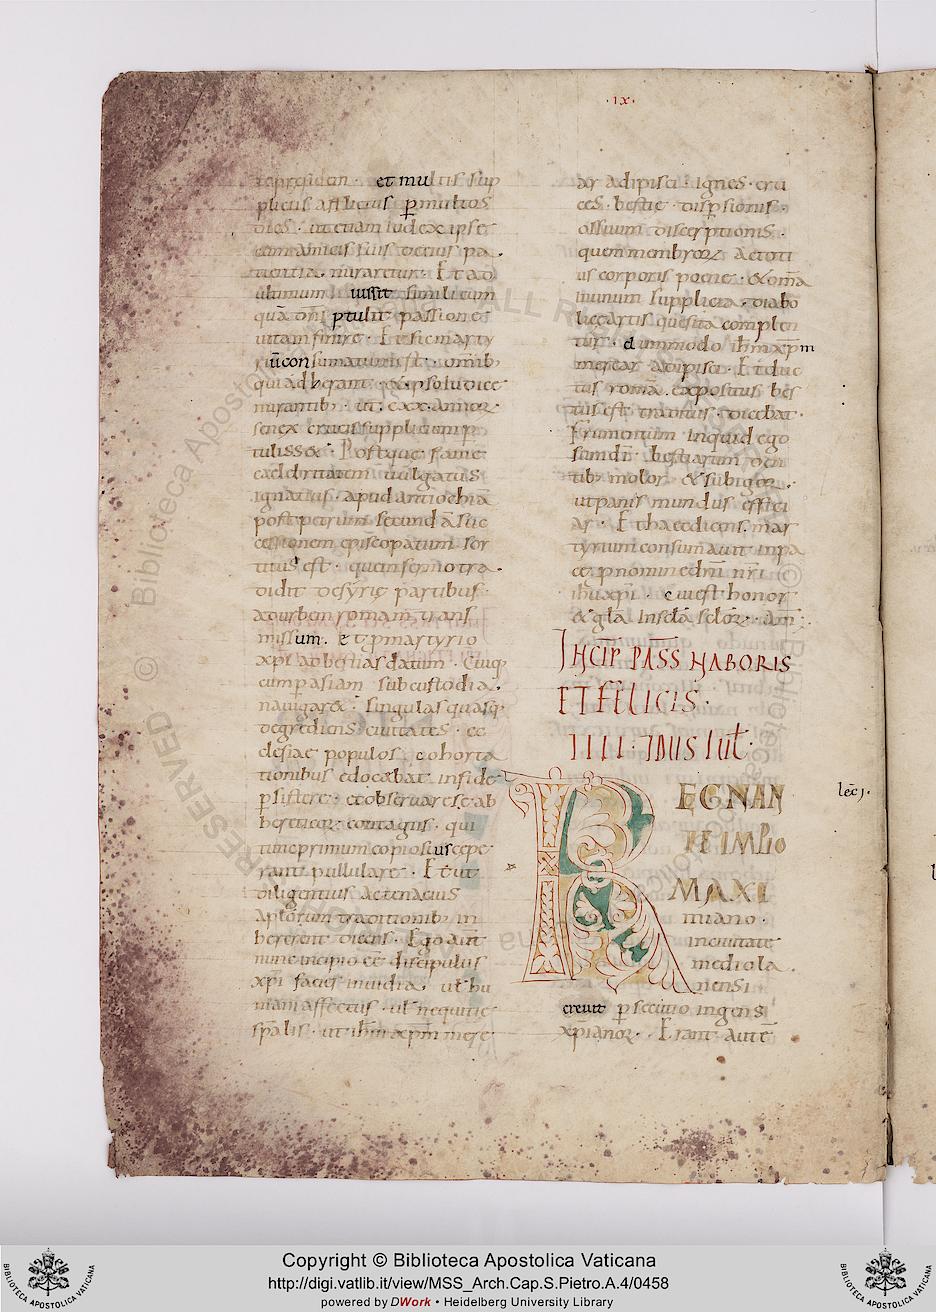 ·ix·
et multis sup
pliciis afflictus p multos
dies · ut etiam iudex ipse
cum amicis suis pa
tientia miraretur · Et ad
ultimum iussit simili eum
qua dns ptulit passione
uitam finire · Et sic marty
riu consumatum est · omib;
mirantib; · ut · cxx · annor
senex crucis supplicium p
tulisset · Postque fame
celebritatem uulgatus
ignatius · apud antiochia
post petrum secunda suc
cessionem episcopatum sor
titus est · quem sermo tra
didit de syrie partibus
ad urbem romam trans
missum · et p martyrio
xpi ad bestias datum · Cuiq;
cum p asiam sub custodia
nauigaret · singulas quasq;
degrediens ciuitates · ec
clesiae populos · cohorta
tionibus edocebat · in fide
psistere · et obseruare se ab
hereticor contagiis · qui
tunc primum copiosius cepe
rant pullulare · Et ut
diligentius ac tenacius
aplorum traditionib; in
hererent dicens · Ego aut
nunc incipio ee discipulus
xpi facies inuidia · uel hu
mani affectus · uel nequitie
spalis · ut ihm xpm mere
ar adipisci · ignes · cru
ces · bestie · dispsiones ·
ossium discerptiones ·
quen membror · ac toti
us corporis poene · et oma
in unum supplicia · diabo
li · artis quesita complen
tur · dummodo ihm xpm
merear adipisci · Et duc
tus roma · expositus bes
tiis est traditus · dicebat ·
Frumentum inquid ego
sum di · bestiarum den
tib; molor · et subigor ·
ut panis mundus effici
ar · Et haec dicens · mar
tyrium consumauit in pa
ce · p nomine dni nri
ihu xpi · cui est honor
et gla in scla sclor · am ·
INCIP PASS NABORIS
ET FELICIS ·
IIII · IDUS IUL ·
REGNAN
TE IMPO
MAXI
miano ·
in ciuitate
mediola
nensi
creuit psecutio ingens
xpianor · Erant aute
lec j ·
Copyright © Biblioteca Apostolica Vaticana
http://digi.vatlib.it/view/MSS_Arch.Cap.S.Pietro.A.4/0458
powered by DWork • Heidelberg University Library